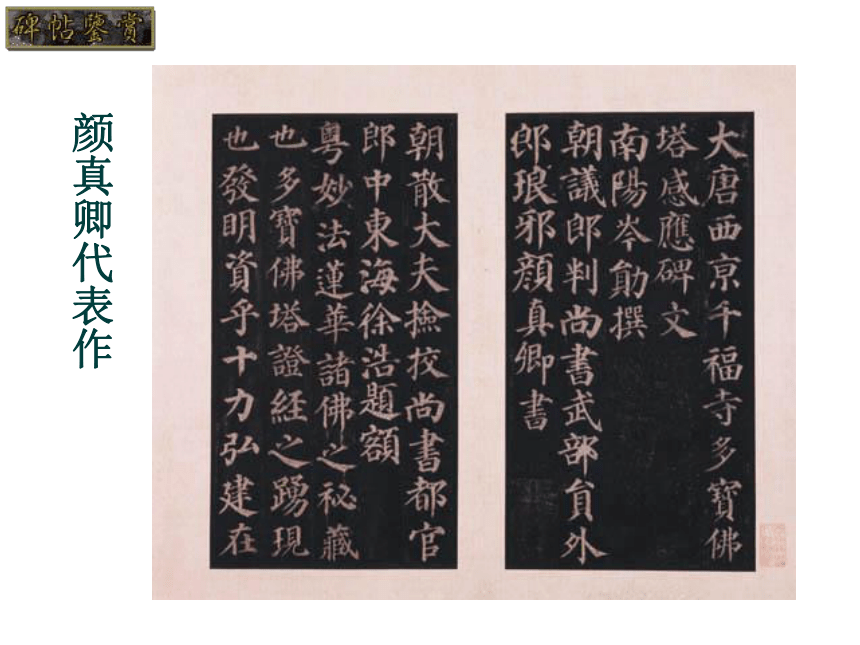 碑帖鑒赏
颜真卿代表作
大唐西京千福寺多寶佛
塔感應碑文
南陽岑勛撰
朝議郎判尚書武部貟外
郎琅邪顏真卿書
朝散大夫撿校尚書都官
郎中東海徐浩題額
粵妙法蓮華諸佛之祕藏
也多寶佛塔證經之踴現
也發明資乎十力弘建在